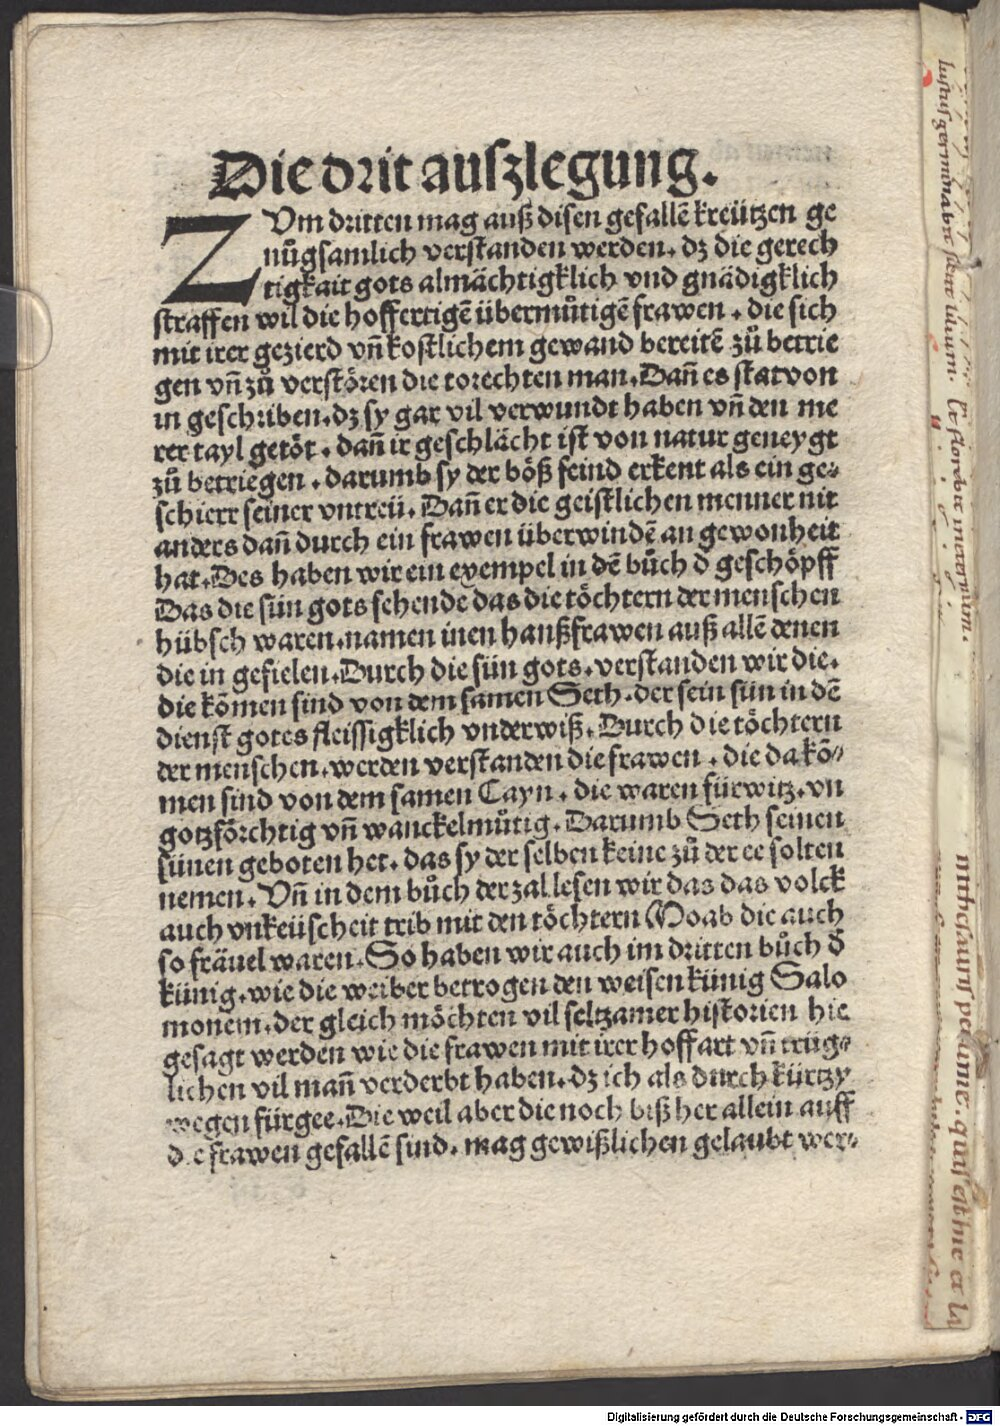 Die drit auſzlegung.
ZVm dritten mag auß diſen gefallẽ kreützen ge
nůgſamlich verſtanden werden. dz die gerech
tigkait gots almächtigklich vnd gnädigklich
ſtraffen wil die hoffertigẽ übermůtigẽ frawen. die ſich
mit irer gezierd vñ koſtlichem gewand bereitẽ zů betrie
gen vñ zů verſtören die torechten man. Dañ es ſtat von
in geſchriben. dz ſy gar vil verwundt haben vñ den me
rer tayl getöt. dañ ir geſchlächt iſt von natur geneygt
zů betriegen. darumb ſy der böß feind erkent als ein ge⸗
ſchierr ſeiner vntreü. Dañ er die geiſtlichen menner nit
anders dañ durch ein frawen überwindẽ an gewonheit
hat. Des haben wir ein exempel in dẽ bůch d̄ geſchöpff
Das die ſün gots ſehende das die töchtern der menſchen
hübſch waren. namen inen haußfrawen auß allẽ denen
die in gefielen. Durch die ſün gots. verſtanden wir die.
die kõmen ſind von dem ſamen Seth. der ſein ſün in dẽ
dienſt gotes fleiſſigklich vnderwiß. Durch die töchtern
der menſchen. werden verſtanden die frawen. die da kõ⸗
men ſind von dem ſamen Cayn. die waren fürwitz. vn
gotzförchtig vñ wanckelmůtig. Darumb Seth ſeinen
ſünen geboten het. das ſy der ſelben keine zů der ee ſolten
nemen. Vñ in dem bůch der zal leſen wir das das volck
auch vnkeüſcheit trib mit den töchtern Moab die auch
ſo fräuel waren. So haben wir auch im dritten bůch d̄
künig. wie die weiber betrogen den weiſen künig Salo
monem. der gleich möchten vil ſeltzamer hiſtorien hie
geſagt werden wie die frawen mit irer hoffart vñ trüg⸗
lichen vil mañ verderbt haben. dz ich als durch kürtzy
wegen fürgee. Die weil aber die noch biß her allein auff
die frawen gefallẽ ſind. mag gewißlichen gelaubt wer⸗
Digitalisierung gefördert durch die Deutsche Forschungsgemeinschaft - DFG